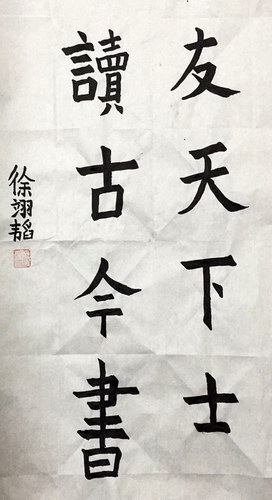 友天下士
讀古今書
徐翊韬